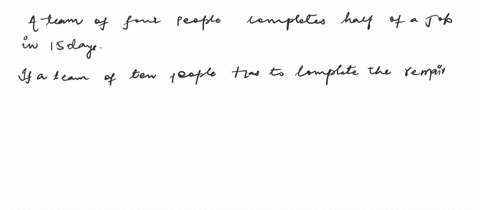 A team of four people completes half of a job
in 15 days.
If a team of ten people has to complete the remain